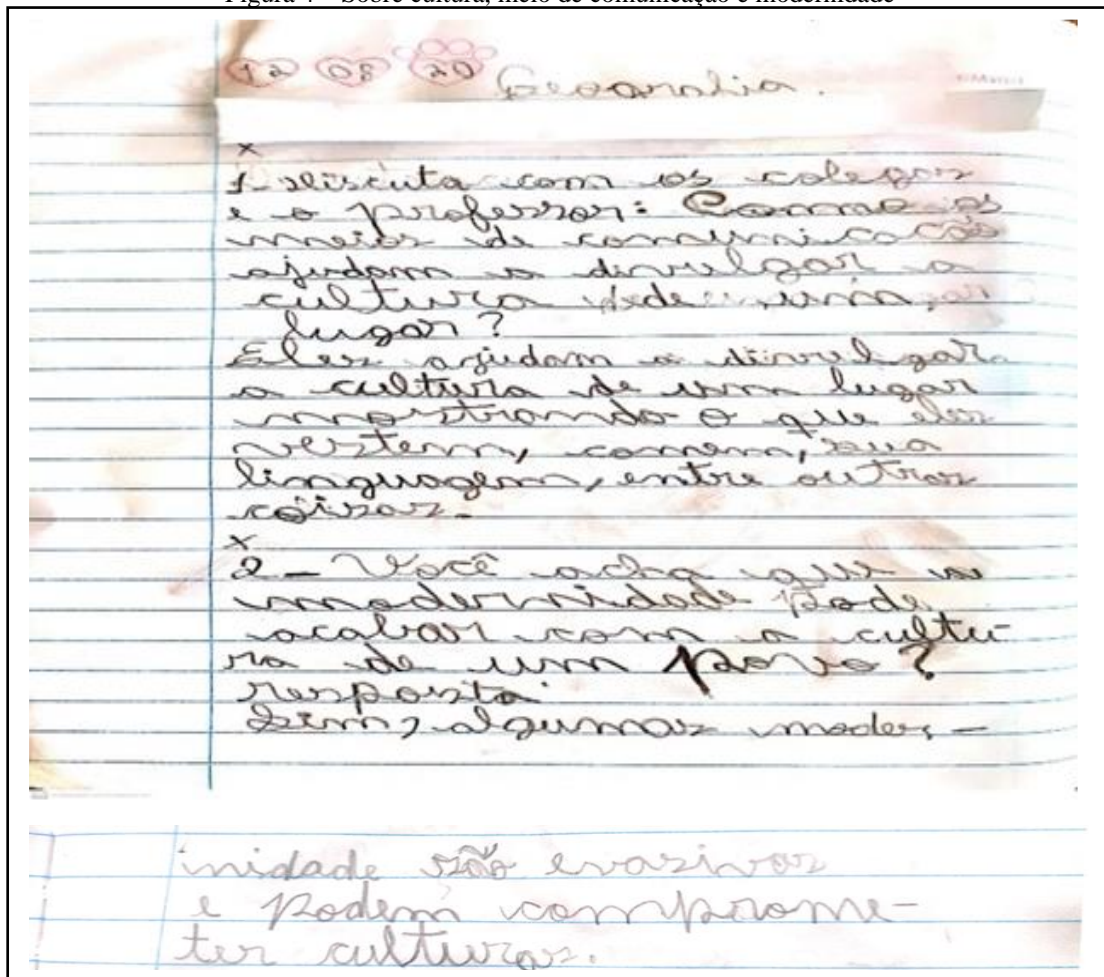 Figura 4 – Sobre cultura, meio de comunicação e modernidade
12 08 20 Geografia.
x
1- Discuta com os colegas
e o professor: Como os
meios de comunicação
ajudam a divulgar a
cultura de um
lugar?
Eles ajudam a divulgar
a cultura de um lugar
mostrando o que eles
vestem, comem, sua
linguagem, entre outras
coisas.
x
2- Você acha que a
modernidade pode
acabar com a cultu-
ra de um povo?
resposta
Sim, algumas moder-
nidade são evasivas
e podem comprome-
ter culturas.